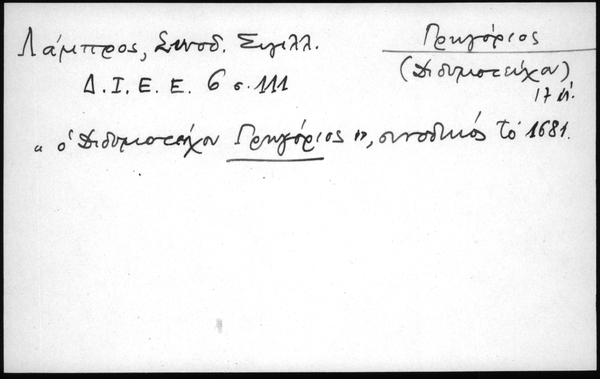 Λάμπρος, Συνοδ. Σιγιλλ.
Δ.Ι.Ε.Ε. 6 σ. 111
Γρηγόριος
(Διδυμοτείχου)
17 αἰ.
« ὁ Διδυμοτείχου Γρηγόριος », συνοδικός τὸ 1681.